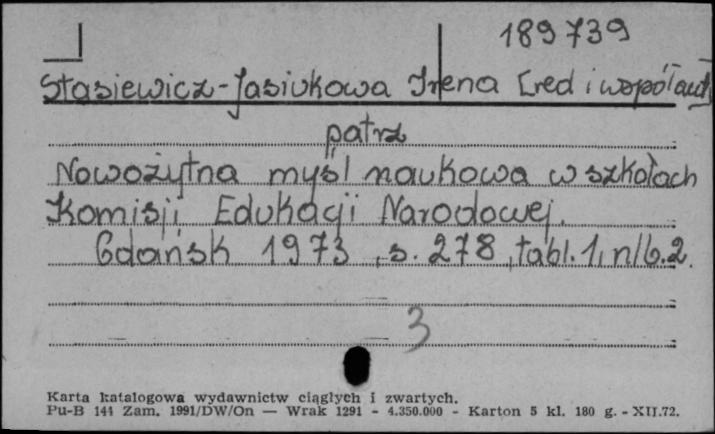 189739
Stasiewicz-Jasiukowa Irena [red i współaut]
patrz
Nowożytna myśl naukowa w szkołach
Komisji Edukacji Narodowej.
Gdańsk 1973, s. 278, tabl. 1, nlb. 2.
3
Karta katalogowa wydawnictw ciągłych i zwartych.
Pu-B 141 Zam. 1991/DW/On — Wrak 1291 - 4.350.000 - Karton 5 kl. 180 g. - XII.72.